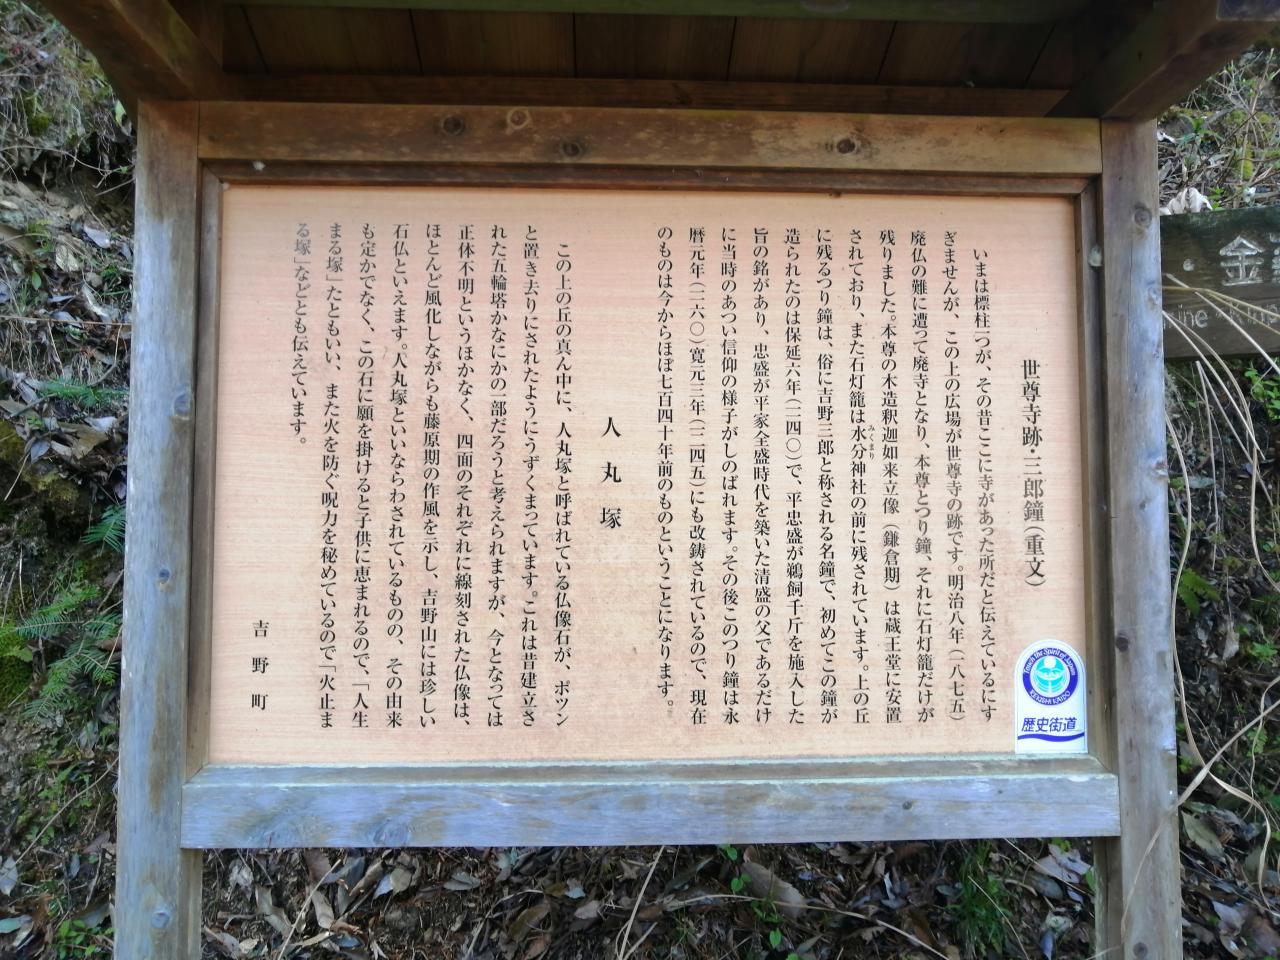 世尊寺跡・三郎鐘（重文）
いまは標柱一つが、その昔ここに寺があった所だと伝えているにす
ぎませんが、この上の広場が世尊寺の跡です。明治八年（一八七五）
廃仏の難に遭って廃寺となり、本尊とつり鐘、それに石灯籠だけが
残りました。本尊の木造釈迦如来立像（鎌倉期）は蔵王堂に安置
されており、また石灯籠は水分神社の前に残されています。上の丘
みくまり
に残るつり鐘は、俗に吉野三郎と称される名鐘で、初めてこの鐘が
造られたのは保延六年（一一四〇）で、平忠盛が鵜飼千斤を施入した
旨の銘があり、忠盛が平家全盛時代を築いた清盛の父であるだけ
に当時のあつい信仰の様子がしのばれます。その後このつり鐘は永
暦元年（一一六〇）寛元三年（一二四五）にも改鋳されているので、現在
のものは今からほぼ七百四十年前のものということになります。
人丸塚
この上の丘の真ん中に、人丸塚と呼ばれている仏像石が、ポツン
と置き去りにされたようにうずくまっています。これは昔建立さ
れた五輪塔かなにかの一部だろうと考えられますが、今となっては
正体不明というほかなく、四面のそれぞれに線刻された仏像は、
ほとんど風化しながらも藤原期の作風を示し、吉野山には珍しい
石仏といえます。人丸塚といいならわされているものの、その由来
も定かでなく、この石に願を掛けると子供に恵まれるので、「人生
まる塚」たともいい、また火を防ぐ呪力を秘めているので「火止ま
る塚」などとも伝えています。
吉野町
Touch the Spirit of Japan
REKISHI KAIDO
歴史街道
金